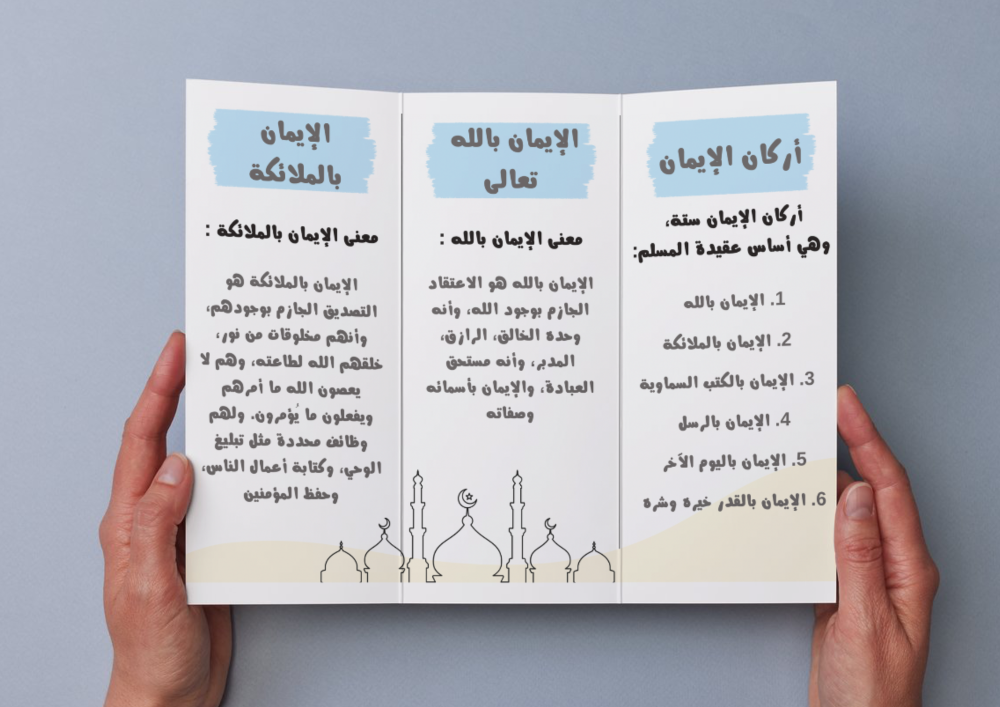 أركان الإيمان
أركان الإيمان ستة،
وهي أساس عقيدة المسلم:
1. الإيمان بالله
2. الإيمان بالملائكة
3. الإيمان بالكتب السماوية
4. الإيمان بالرسل
5. الإيمان باليوم الآخر
6. الإيمان بالقدر خيره وشره
الإيمان بالله
تعالى
معنى الإيمان بالله :
الإيمان بالله هو الاعتقاد
الجازم بوجود الله، وأنه
وحده الخالق، الرازق،
المدبر، وأنه مستحق
العبادة، والإيمان بأسمائه
وصفاته
الإيمان
بالملائكة
معنى الإيمان بالملائكة :
الإيمان بالملائكة هو
التصديق الجازم بوجودهم،
وأنهم مخلوقات من نور،
خلقهم الله لطاعته، وهم لا
يعصون الله ما أمرهم
ويفعلون ما يُؤمرون. ولهم
وظائف محددة مثل تبليغ
الوحي، وكتابة أعمال الناس،
وحفظ المؤمنين